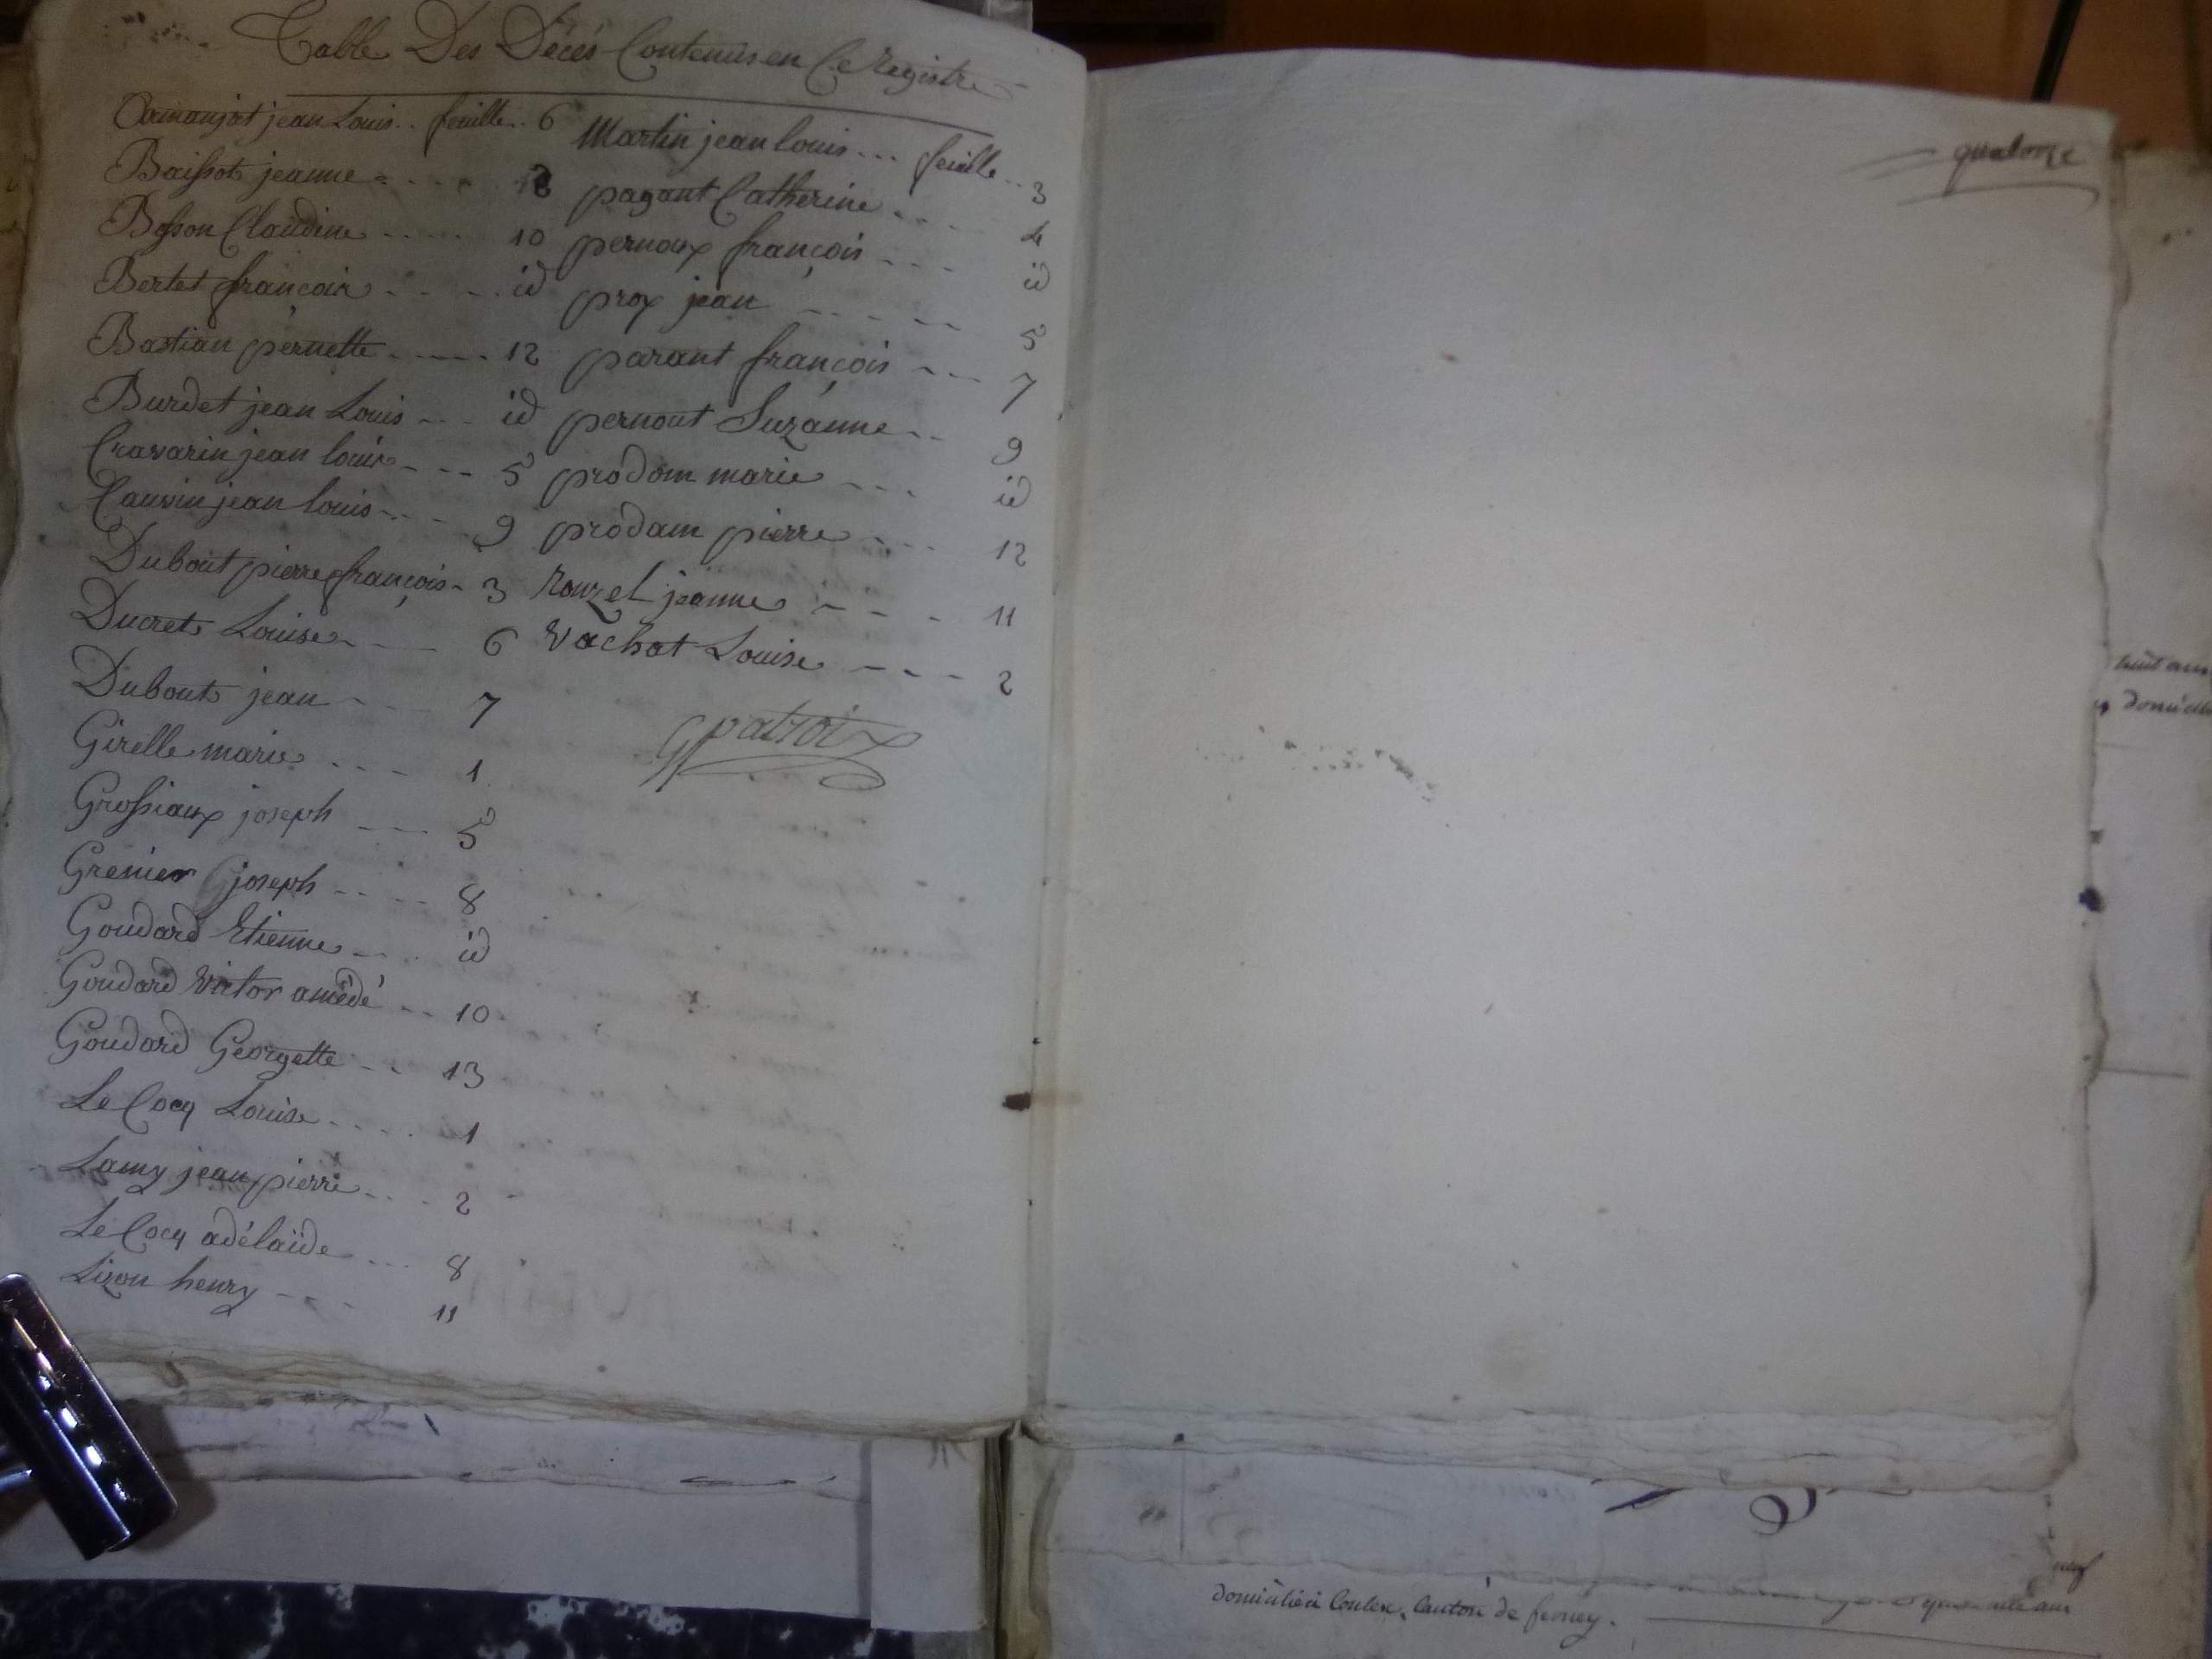 Table Des Décés Contenus en Ce Registre
jean Louis.. feuille.. 6
Baissot jeanne
Bosson Claudine ----- 10
Bertet françois ---- id
Bastian pernette ----- 12
Burdet jean Louis --- id
Cravarin jean louis --- 5
Cauvin jean louis --- 9
Dubout pierre françois - 3
Ducret Louise --- 6
Dubout jean --- 7
Girelle marie --- 1
Grossiaux joseph --- 5
Grenier joseph ---- 8
Goudard Etienne --- id
Goudard victor amédé -- 10
Goudard Georgette -- 13
Le Cocq Louise ---- 1
Lamy jean pierre --- 2
Le Cocq adélaïde --- 8
Lizon henry --- 11
Martin jean louis ... feuille.. 3
pagant Catherine ---- 4
pernoux françois --- id
prox jean ---- 5
parant françois --- 7
pernout Suzanne -- 9
prodom marie --- id
prodam pierre --- 12
Rouzet jeanne --- 11
vachat Louise ---- 2
Gpatroix
quatorze
huit ans
domicilié à Coulex, Canton de ferney.